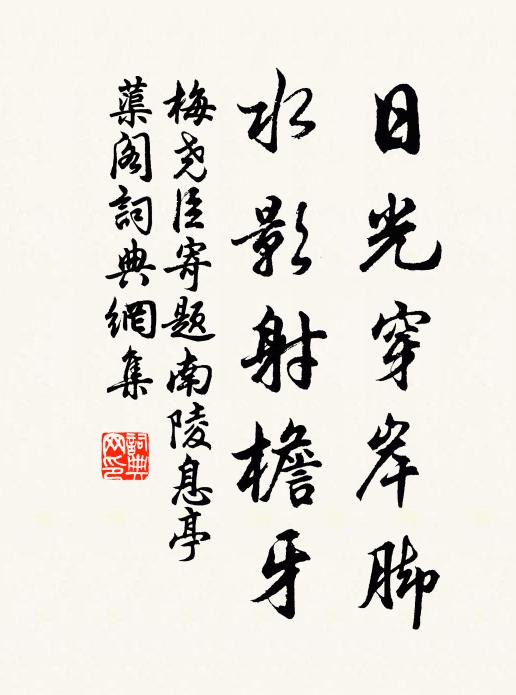 日光穿岸脚
水影射檐牙
梅尧臣寄题南陵息亭
蕖阁詞典網集
詞典
网印